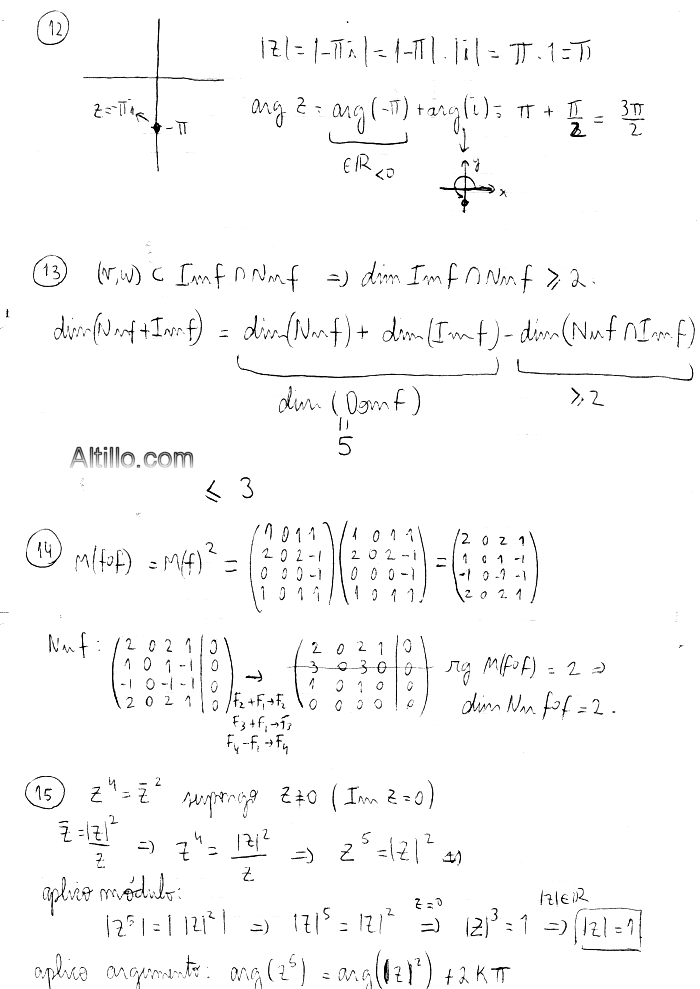 12
|z| = |-πi| = |-π| . |i| = π . 1 = π
z=-πi
-π
arg z = arg(-π) + arg(i) = π + π/2 = 3π/2
∈ℝ<0
y
x
13 (v,w) ⊂ Imf ∩ Nuf => dim Imf ∩ Nuf ≥ 2.
dim(Nuf + Imf) = dim(Nuf) + dim(Imf) - dim(Nuf ∩ Imf)
dim (Domf) ≥ 2
=
5
Altillo.com
≤ 3
14 M(fof) = M(f)² = (1 0 1 1; 2 0 2 -1; 0 0 0 -1; 1 0 1 1) (1 0 1 1; 2 0 2 -1; 0 0 0 -1; 1 0 1 1) = (2 0 2 1; 1 0 1 -1; -1 0 -1 -1; 2 0 2 1)
Nuf : (2 0 2 1 | 0; 1 0 1 -1 | 0; -1 0 -1 -1 | 0; 2 0 2 1 | 0) → (2 0 2 1 | 0; 3 0 3 0 | 0; 1 0 1 0 | 0; 0 0 0 0 | 0) rg M(fof) = 2 =>
dim Nu fof = 2.
F₂+F₁→F₂
F₃+F₁→F₃
F₄-F₁→F₄
15 z⁴ = z̄² supongo z≠0 (Im z=0)
z̄ = |z|²/z => z⁴ = |z|²/z => z⁵ = |z|²
aplico módulo:
|z⁵| = | |z|² | => |z|⁵ = |z|² z=0 => |z|³ = 1 |z|∈ℝ => |z| = 1
aplico argumento: arg(z⁵) = arg(|z|²) + 2kπ